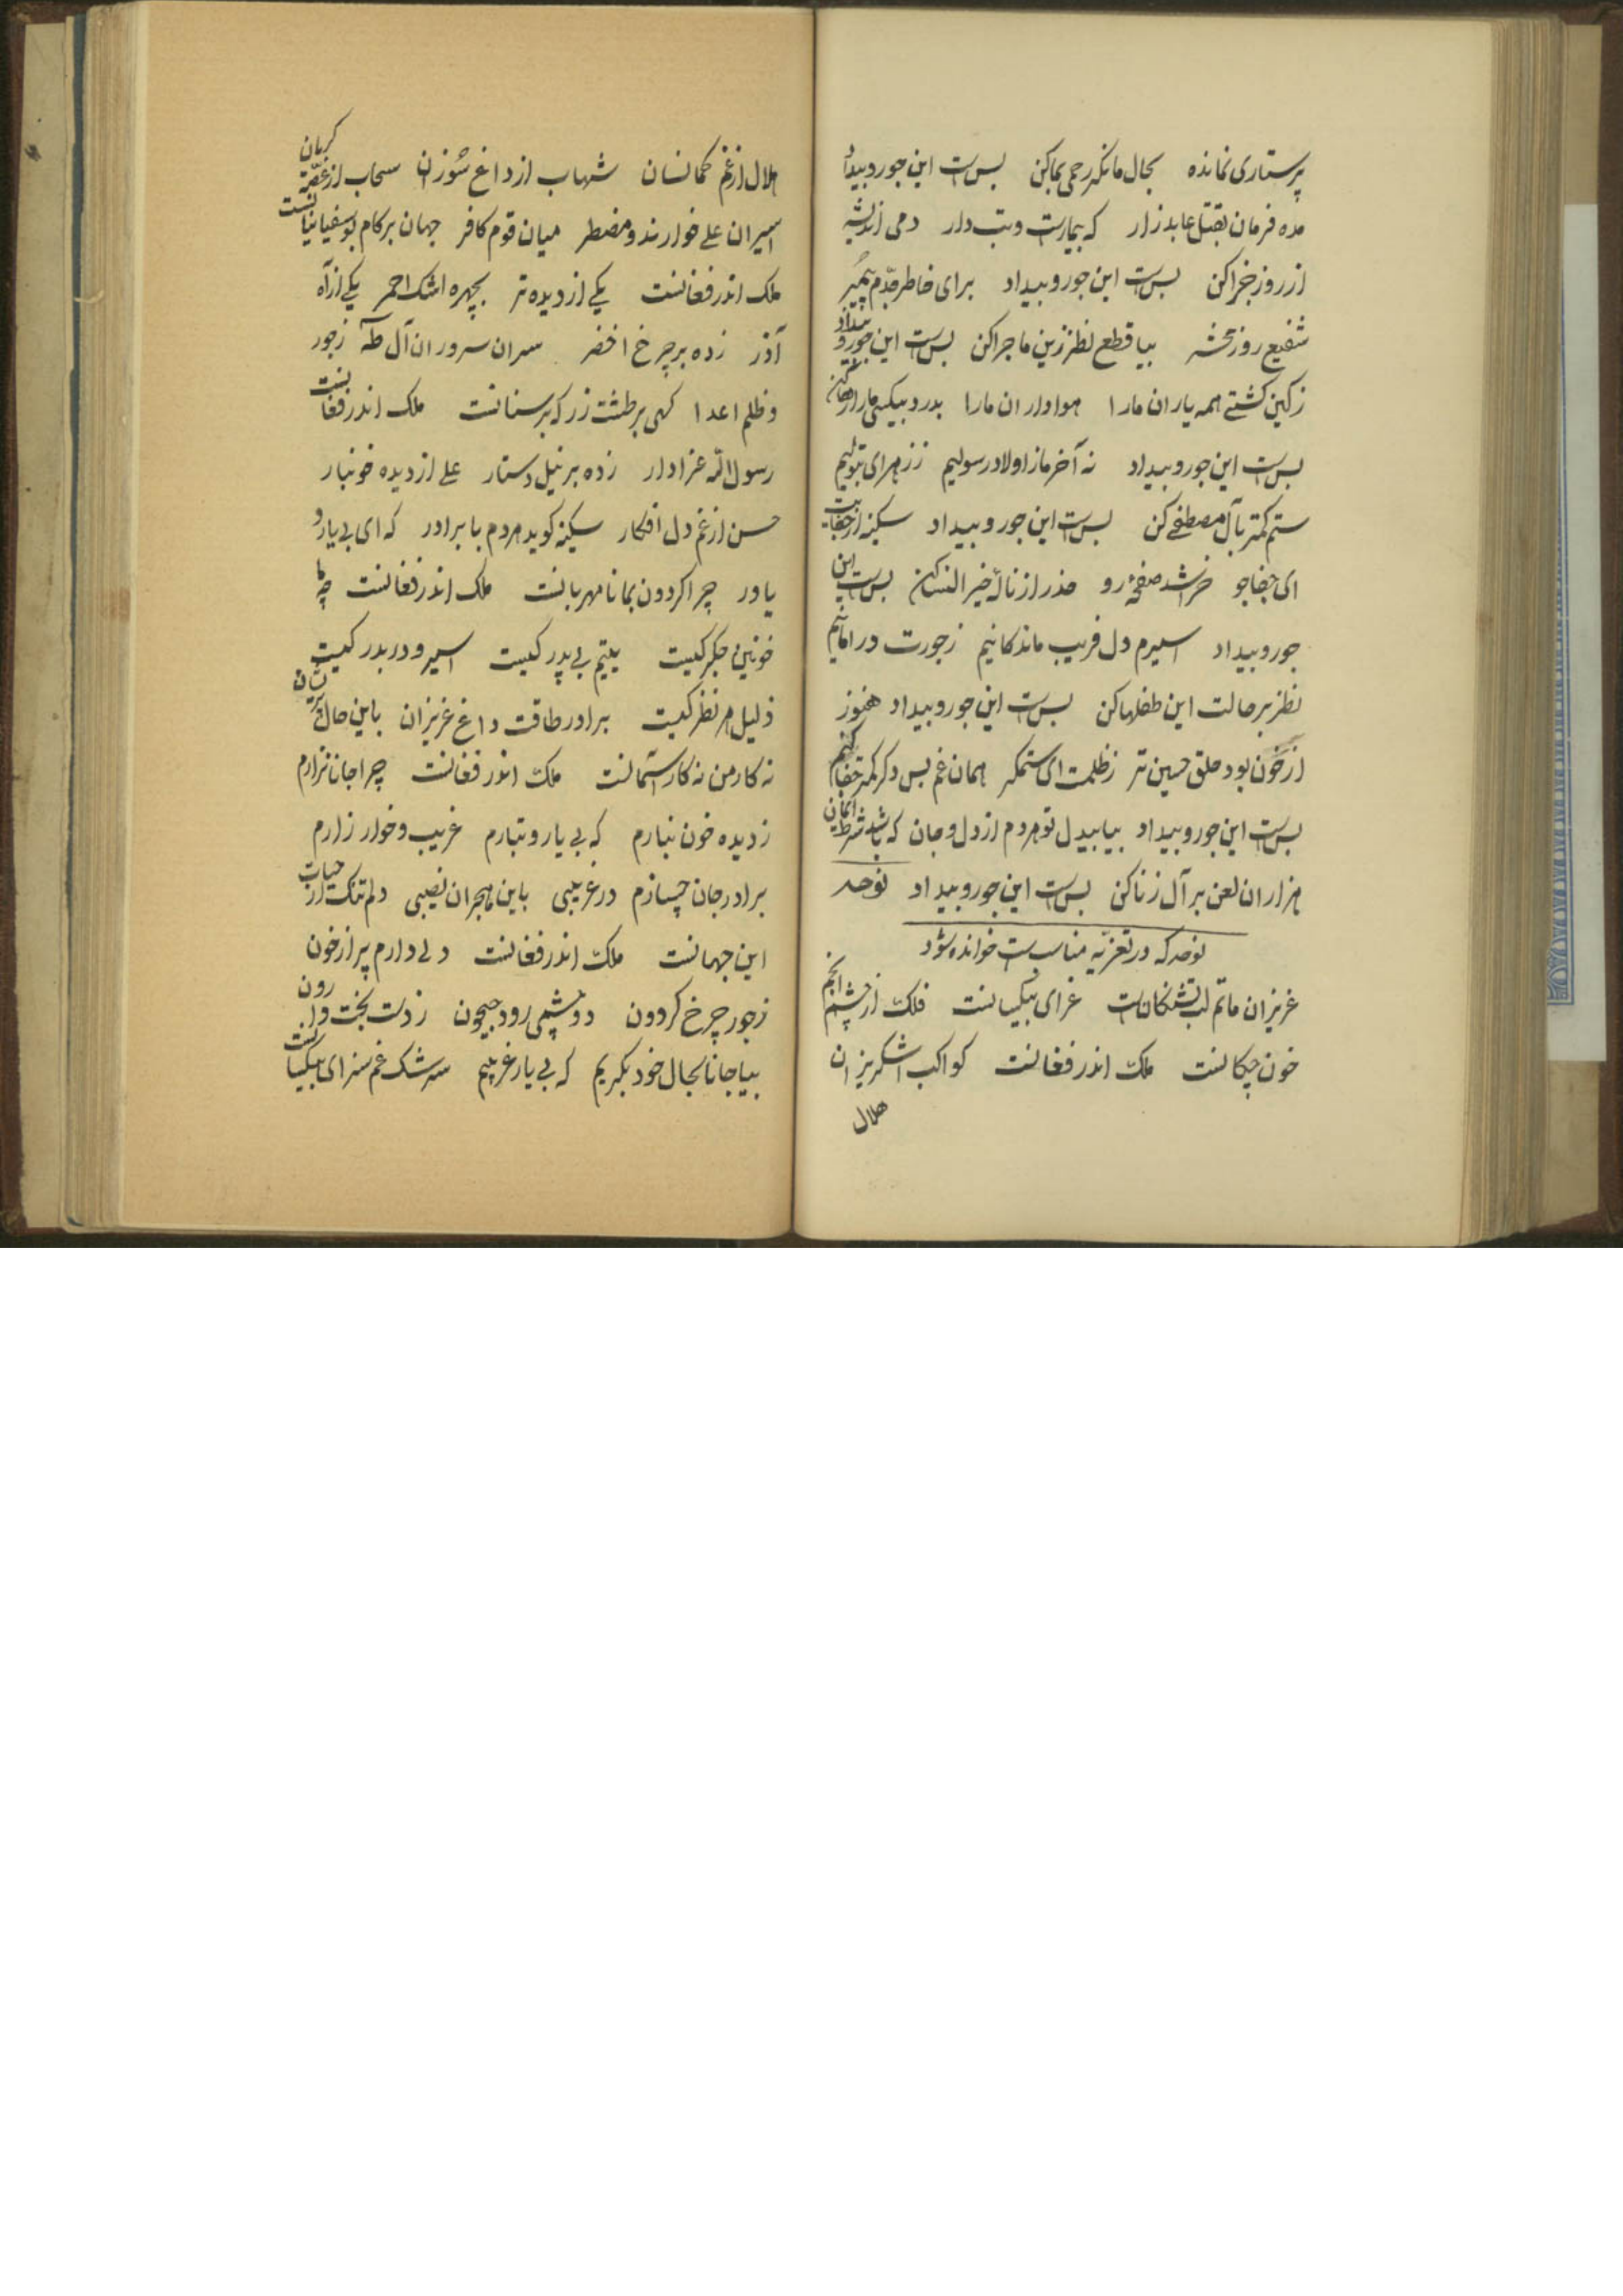 پرستاری نمانده بحال ما نکر رحمی بما کن بس است این جور و بیداد
مده فرمان بقتل عابد زار که بیمارست و تب دار دمی اندیشه
از روز جزا کن بس است این جور و بیداد برای خاطر جدم پیمبر
شفیع روز محشر بیا قطع نظر زین ماجرا کن بس است این جور و بیداد
ز کین کشتی همه یاران ما را هواداران ما را بدرد بیکسی ما را رها کن
بس است این جور و بیداد نه آخر ما ز اولاد رسولیم ز زهرای بتولیم
ستم کمتر بآل مصطفی کن بس است این جور و بیداد سکینه از جفایت
ای جفاجو خراشد صفحهٔ رو حذر از نالهٔ خیر النسا کن بس است این
جور و بیداد اسیرم دل فریب ماندکانیم ز جورت در امانیم
نظر بر حالت این طفلها کن بس است این جور و بیداد هنوز
از خون بود حلق حسین تر ز ظلمت ای ستمکر همان غم بس دکر کمتر جفا کن
بس است این جور و بیداد بیا بیدل تو هر دم از دل و جان که باشد شرط ایمان
هزاران لعن بر آل زنا کن بس است این جور و بیداد نوحه
نوحه که در تعزیه مناسب است خوانده شود
عزیزان ماتم لب تشنکان است عزای بیکسانست فلک از چشم انجم
خون چکانست ملک اندر فغانست کواکب اشکریزان
هلال
هلال از غم کمانسان شهاب از داغ سوزان سحاب از غصه کریان
اسیران علی خوارند و مضطر میان قوم کافر جهان بر کام بوسفیانیانست
ملک اندر فغانست یکی از دیده تر بچهره اشک احمر یکی از آه
آذر زده بر چرخ اخضر سران سروران آل طه ز جور
و ظلم اعدا کهی بر طشت زر که بر سنانست ملک اندر فغانست
رسول الله عزادار زده بر نیل دستار علی از دیده خونبار
حسن از غم دل افکار سکینه کوید هر دم با برادر که ای بی یار و
یاور چرا کردون بما نامهربانست ملک اندر فغانست چو ما
خونین جکر کیست یتیم بی پدر کیست اسیر و دربدر کیست
ذلیل هر نظر کیست برادر طاقت داغ عزیزان باین حال پریشان
نه کار من نه کار آسمانست ملک اندر فغانست چرا جانا نزارم
ز دیده خون نبارم که بی یار و تبارم غریب و خوار زارم
برادر جان چسازم در غریبی باین هجران نصیبی دلم تنک از حیات
این جهانست ملک اندر فغانست دلی دارم پر از خون
ز جور چرخ کردون دو چشمی رود جیحون ز دست بخت وارون
بیا جانا بحال خود بکریم که بی یار غریبیم سرشک غم سزای بیکسانست